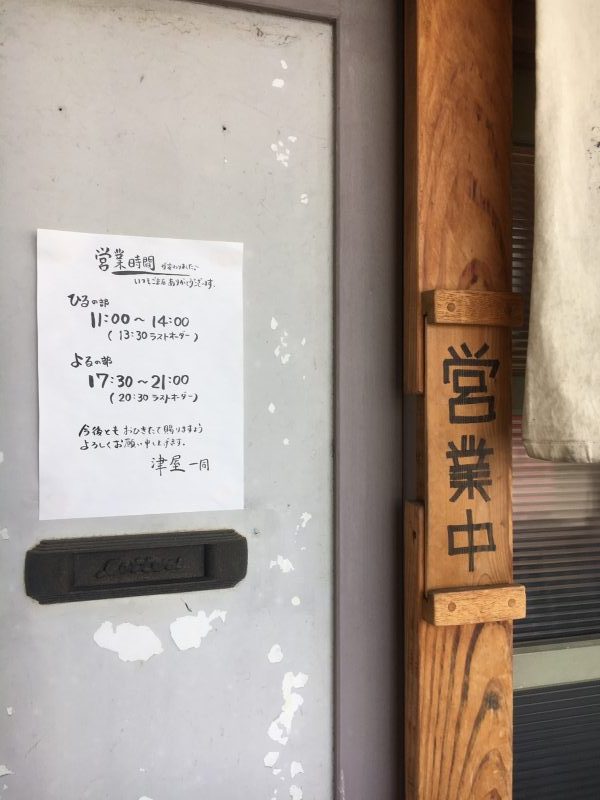 営業時間 が変わりました。
いつもご来店 ありがとうございます。
ひるの部
11:00〜14:00
(13:30 ラストオーダー)
よるの部
17:30〜21:00
(20:30 ラストオーダー)
今後とも おひきたて賜りますよう
よろしくお願い申し上げます。
津屋 一同
Letters
営業中